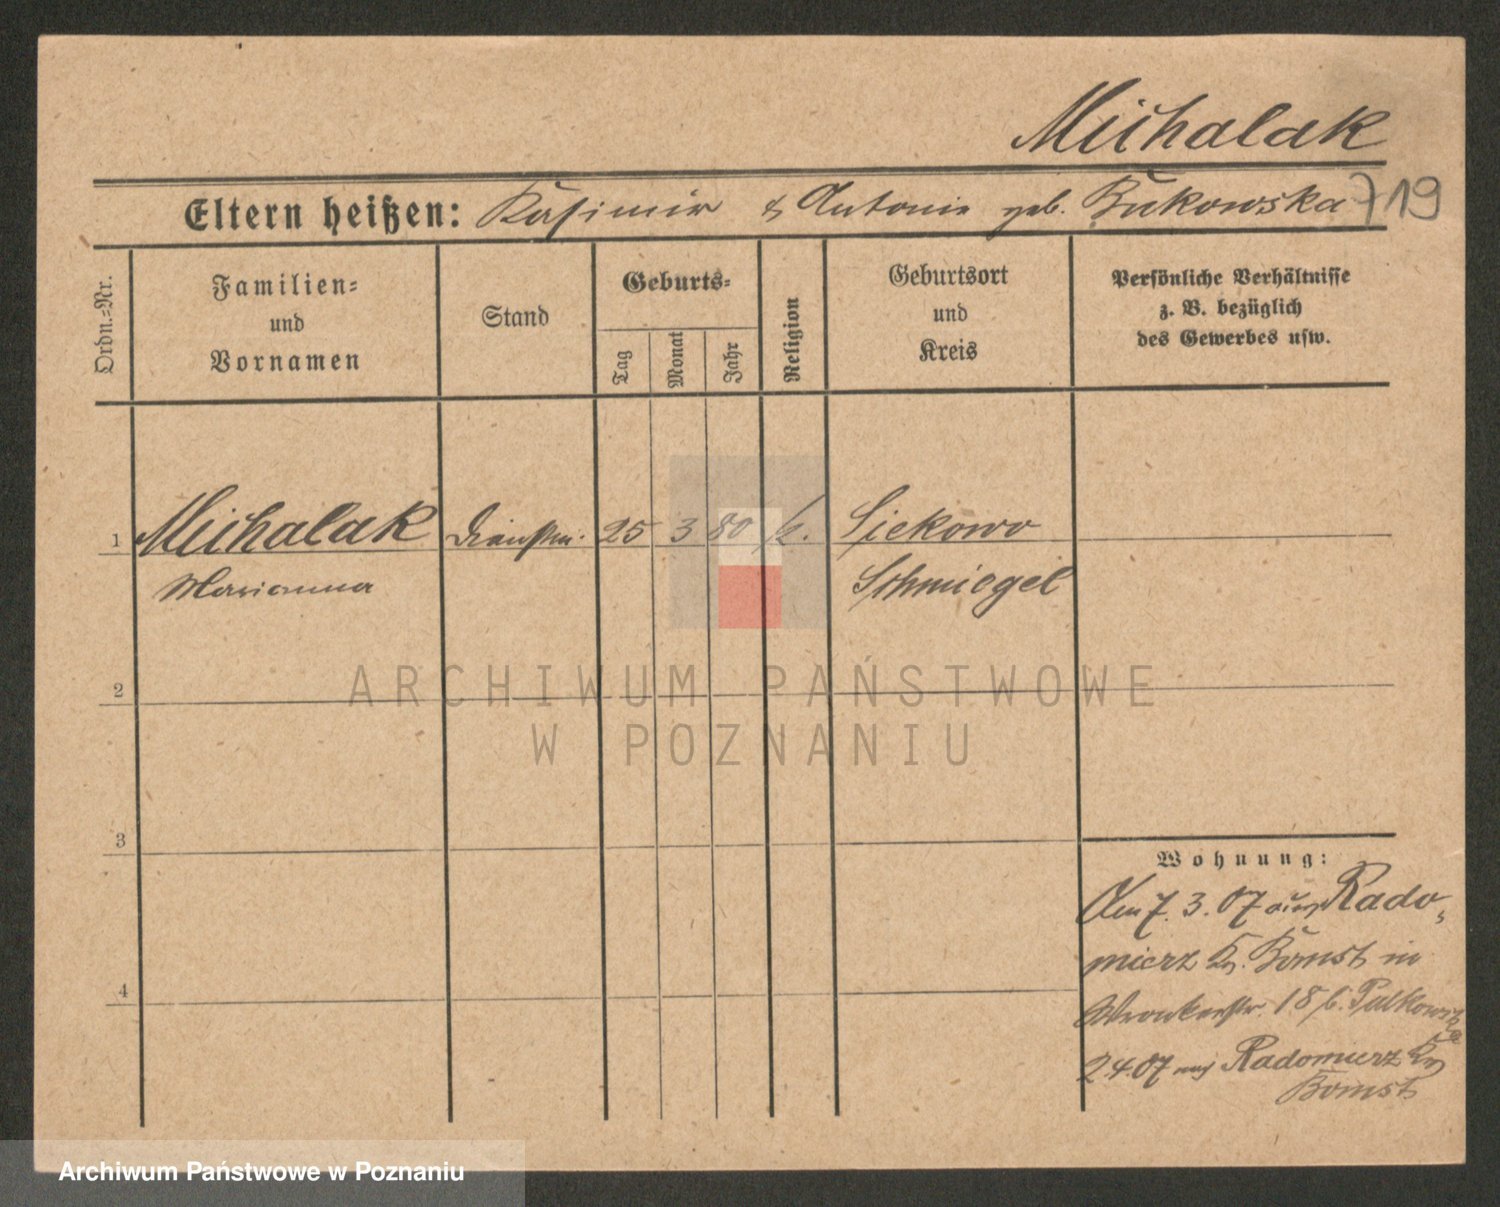 Michalak
Eltern heißen: Kasimir & Antonie geb. Bukowska 719
Ordn.-Nr.
Familien-
und
Vornamen
Stand
Geburts-
Tag
Monat
Jahr
Religion
Geburtsort
und
Kreis
Persönliche Verhältnisse
z. B. bezüglich
des Gewerbes usw.
1 Michalak Dienstm. 25 3 80 k. Siekowo
Marianna Schmiegel
2
ARCHIWUM PAŃSTWOWE
W POZNANIU
3
Wohnung:
Am 7. 3. 07 aus Rado-
mierz Kr. Bomst in
4
Wronkerstr. 18 b. Pulkowska
2.4.07 nach Radomierz Kr
Bomst
Archiwum Państwowe w Poznaniu